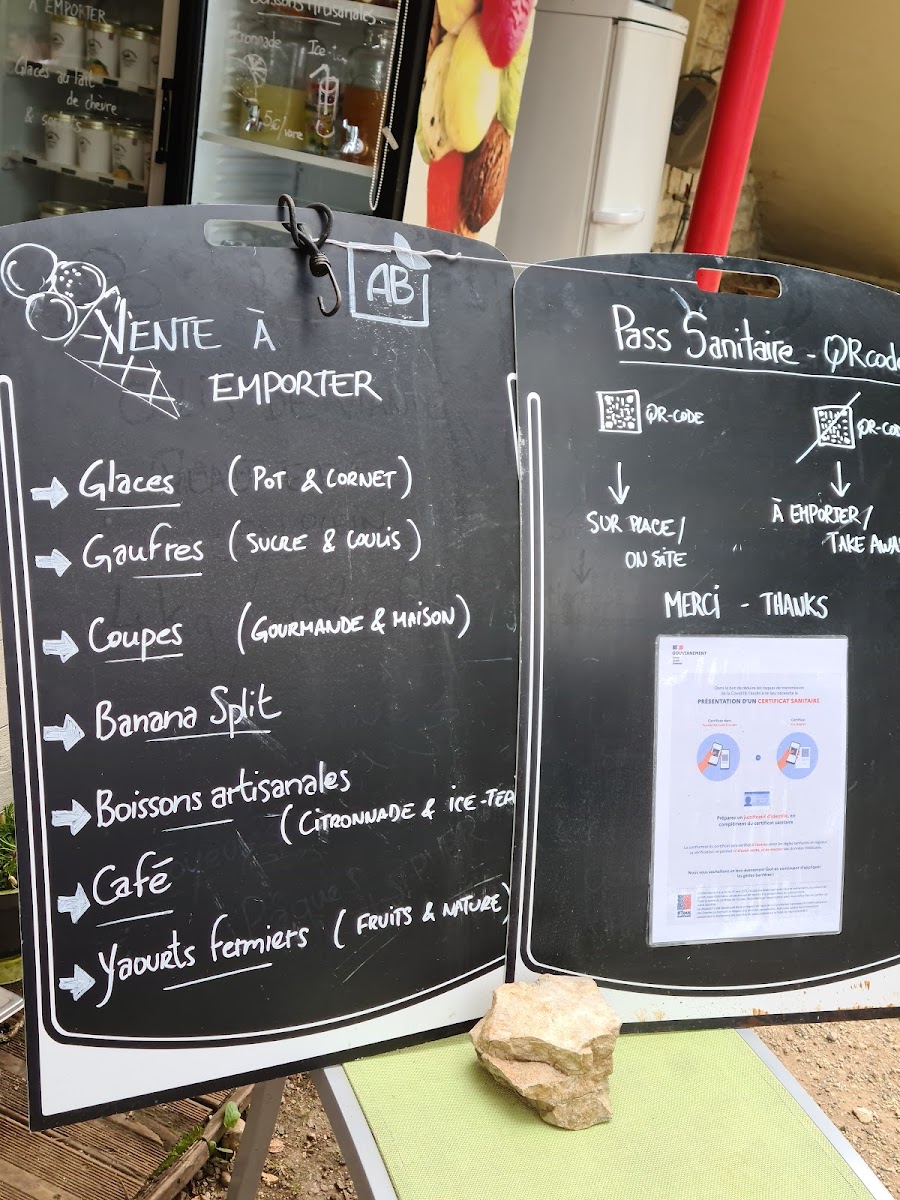 À EMPORTER
Glaces au lait
de chèvre
&
Boissons Artisanales
Ice
5€/verre
AB
VENTE À
EMPORTER
Glaces (POT & CORNET)
Gaufres (SUCRE & COULIS)
Coupes (GOURMANDE & MAISON)
Banana Split
Boissons artisanales
(CITRONNADE & ICE-TEA
Café
Yaourts fermiers (FRUITS & NATURE)
Pass Sanitaire - QRcode
QR-CODE
QR-COD
SUR PLACE/
ON SITE
À EMPORTER/
TAKE AWA
MERCI - THANKS
GOUVERNEMENT
PRÉSENTATION D'UN CERTIFICAT SANITAIRE
Préparer un justificatif d'identité, en
complément du certificat sanitaire